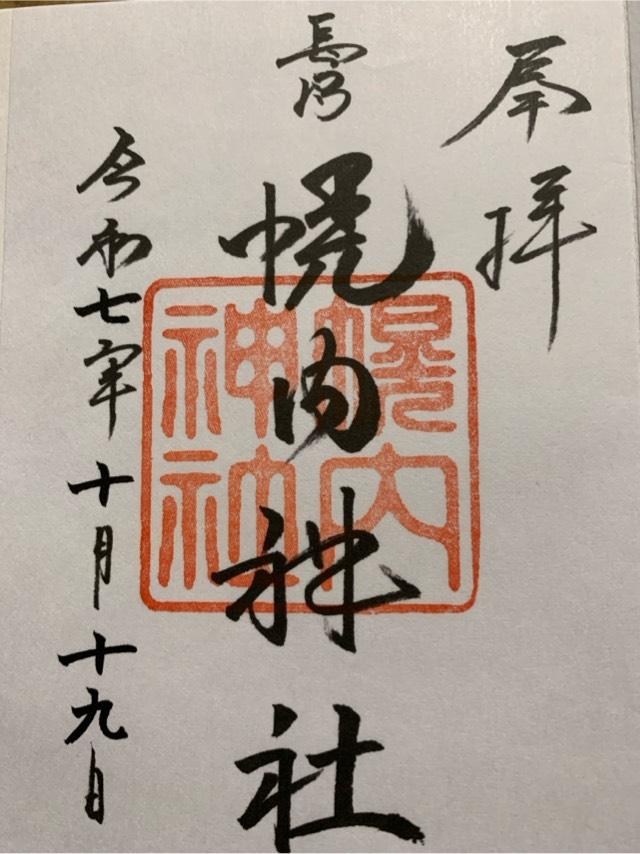 奉拝
長沼
幌内神社
令和七年十月十九日
幌内
神社